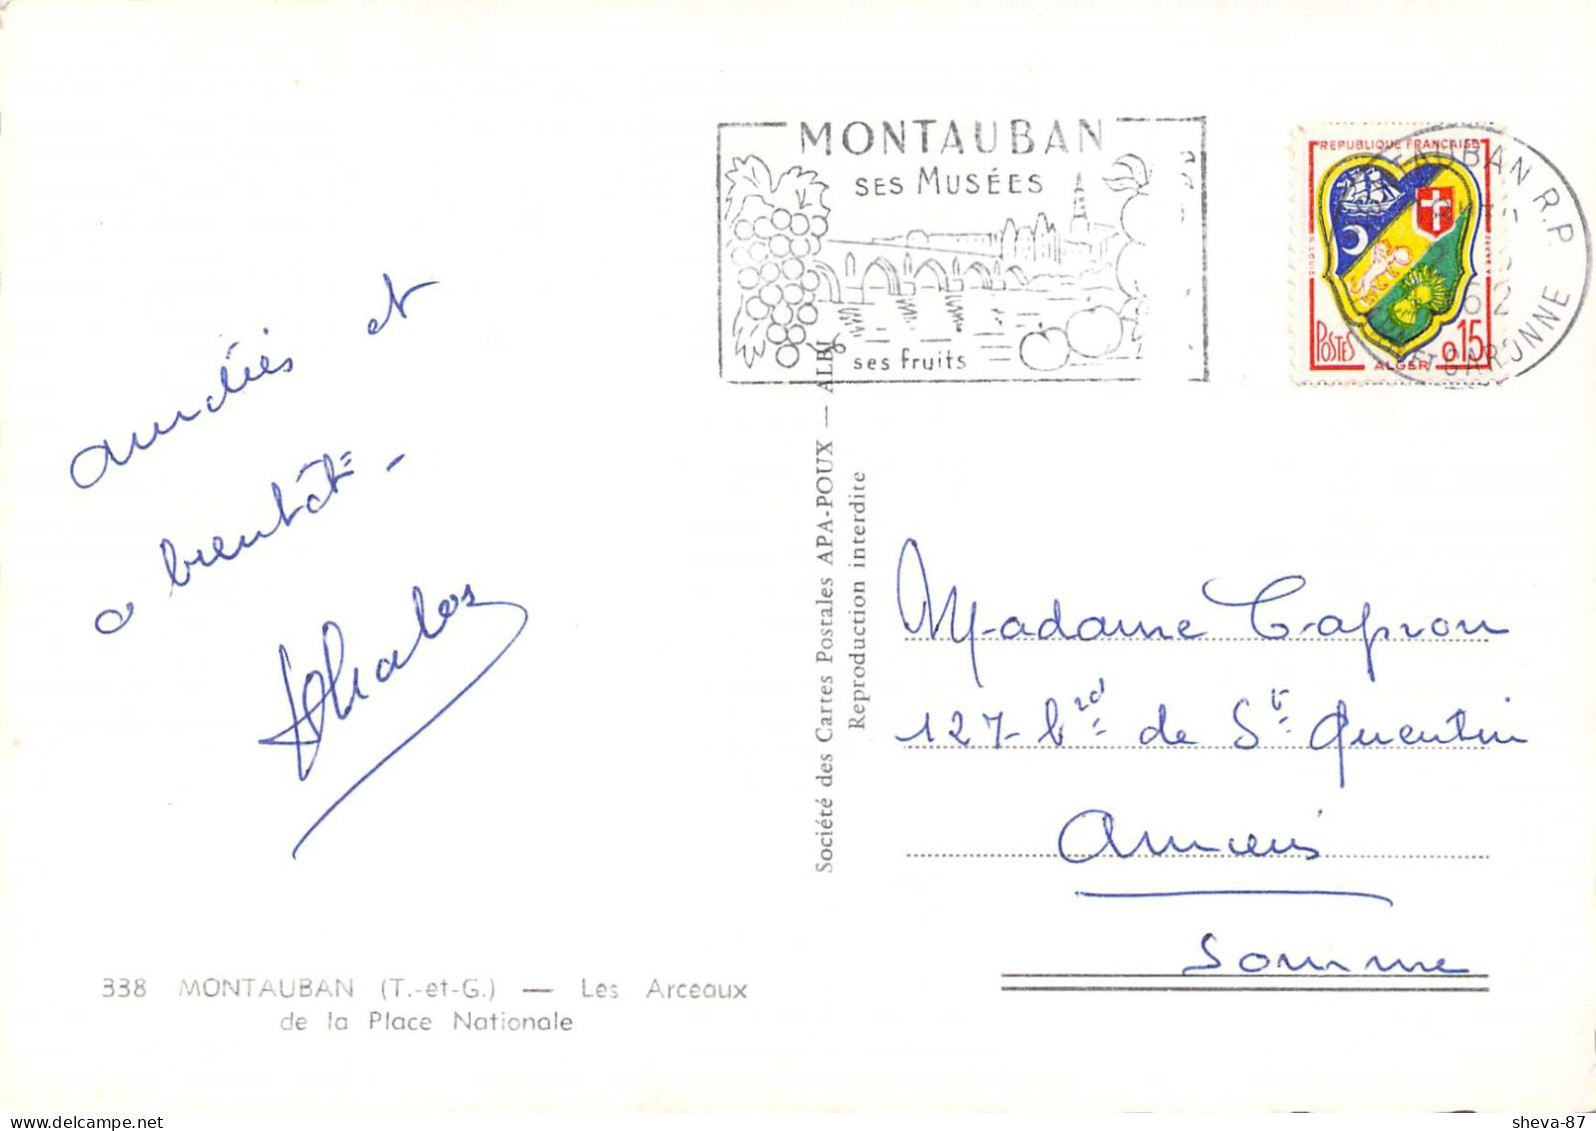 MONTAUBAN
SES MUSÉES
ses fruits
REPUBLIQUE FRANÇAISE
POSTES
0,15
ALGER
R.P.
62
ET GARONNE
amitiés et
a bientôt -
Société des Cartes Postales APA-POUX — ALBI
Reproduction interdite
Madame Capron
127 - brd de St Quentin
Amiens
Somme
338 MONTAUBAN (T.-et-G.) — Les Arceaux
de la Place Nationale
sheva-87